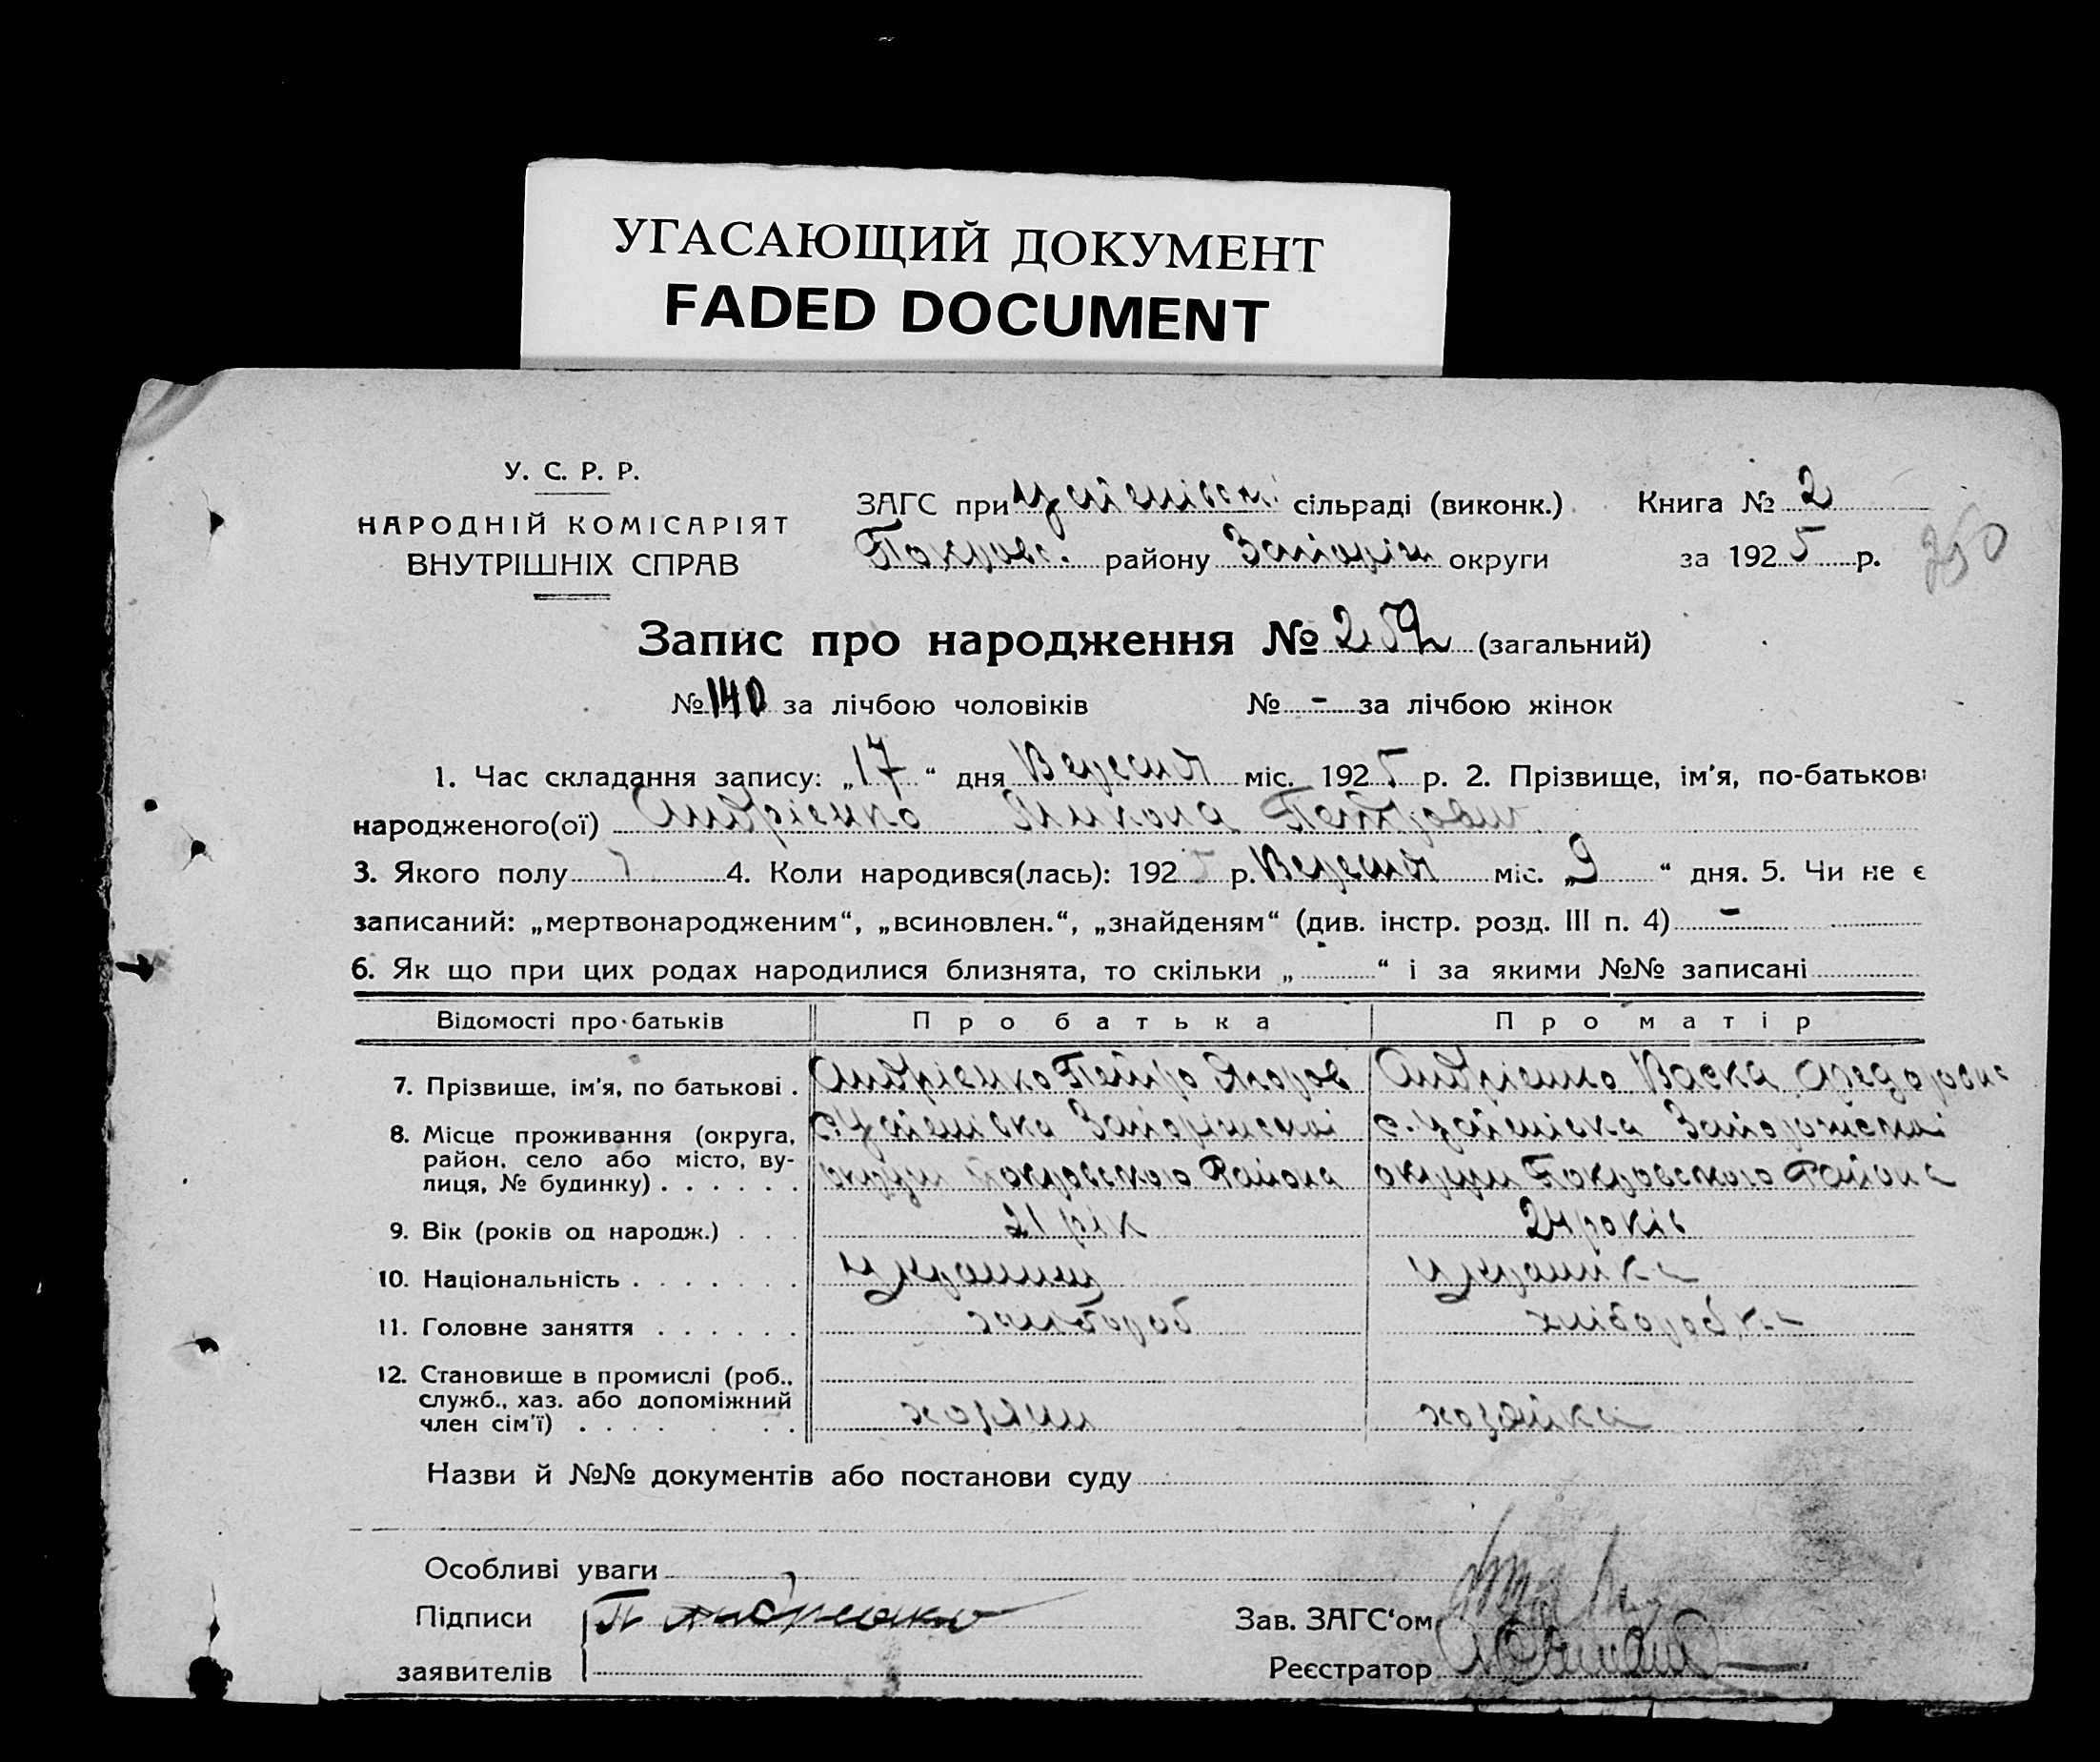 УГАСАЮЩИЙ ДОКУМЕНТ
FADED DOCUMENT
У. С. Р. Р.
НАРОДНІЙ КОМІСАРІЯТ
ВНУТРІШНІХ СПРАВ
ЗАГС при сільраді (виконк.) Книга № 2
Покровс. району Запоріж округи за 1925 р.
250
Запис про народження № 252 (загальний)
№ 140 за лічбою чоловіків № - за лічбою жінок
1. Час складання запису: „17“ дня Вересня міс. 1925 р. 2. Прізвище, ім'я, по-батькові
народженого(ої) Андрієнко Микола Петрович
3. Якого полу 4. Коли народився(лась): 1925 р. Вересня міс. „9“ дня. 5. Чи не є
записаний: „мертвонародженим“, „всиновлен.“, „знайденям“ (див. інстр. розд. III п. 4) -
6. Як що при цих родах народилися близнята, то скільки „ “ і за якими №№ записані
Відомості про батьків Про батька Про матір
7. Прізвище, ім'я, по батькові . Андрієнко Петро Ягоров Андрієнко Васка Федоровна
8. Місце проживання (округа, район, село або місто, вулиця, № будинку) . . . . . .
с. Запоріжської с. Запорожської
округи Покровского Района округи Покровского Района
9. Вік (років од народж.) . . . 21 рік 24 років
10. Національність . . . . . . . українец українка
11. Головне заняття . . . . . . хлібороб хліборобка
12. Становище в промислі (роб., служб., хаз. або допоміжний член сім'ї) . . . . . . хозяин хозяйка
Назви й №№ документів або постанови суду
Особливі уваги
Підписи П Андриенко Зав. ЗАГС'ом
заявителів Реєстратор